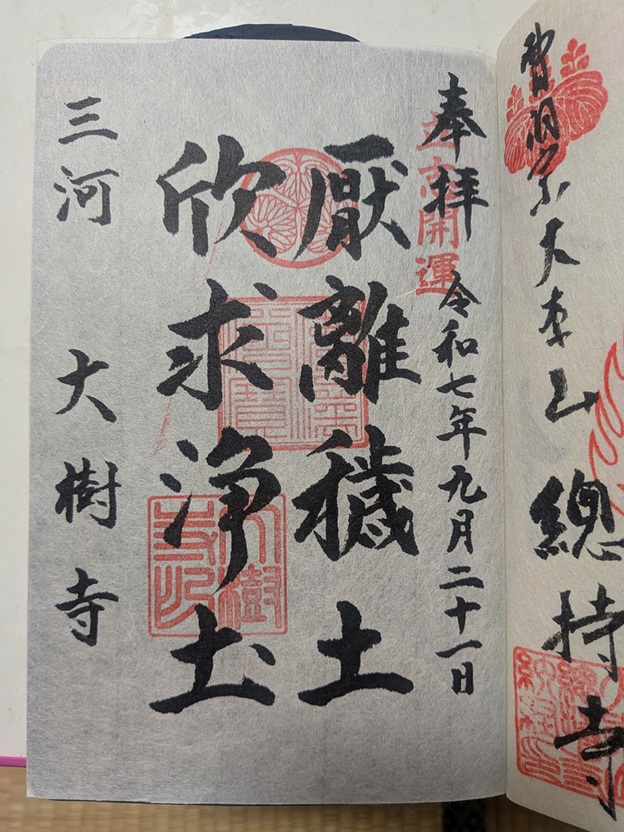 曹洞宗大本山 總持寺
奉拝 令和七年九月二十一日
開運
厭離穢土
欣求浄圡
大樹
寺印
三河 大樹寺